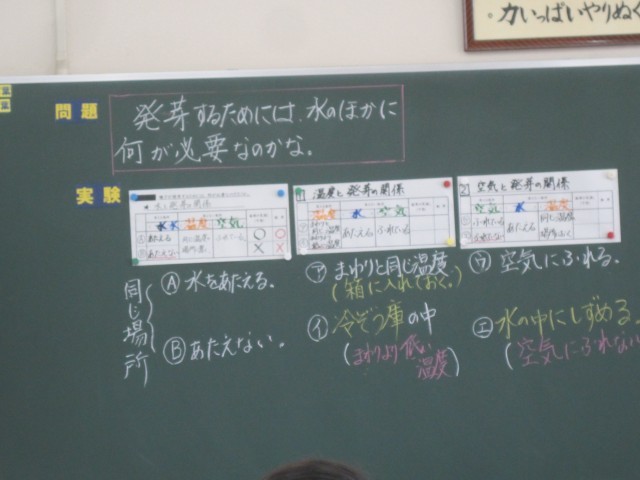 力いっぱいやりぬく
問題
発芽するためには、水のほかに
何が必要なのかな。
実験
水と発芽の関係
水 温度 空気
あたえる
あたえない
1 温度と発芽の関係
温度 水 空気
あたえる ふれている
2 空気と発芽の関係
空気 水 温度
ふれている あたえる
同じ場所
Ⓐ 水をあたえる。
Ⓑ あたえない。
㋐ まわりと同じ温度
(箱に入れておく。)
㋑ 冷ぞう庫の中
(まわりより低い
温度)
㋒ 空気にふれる。
㋓ 水の中にしずめる。
(空気にふれない